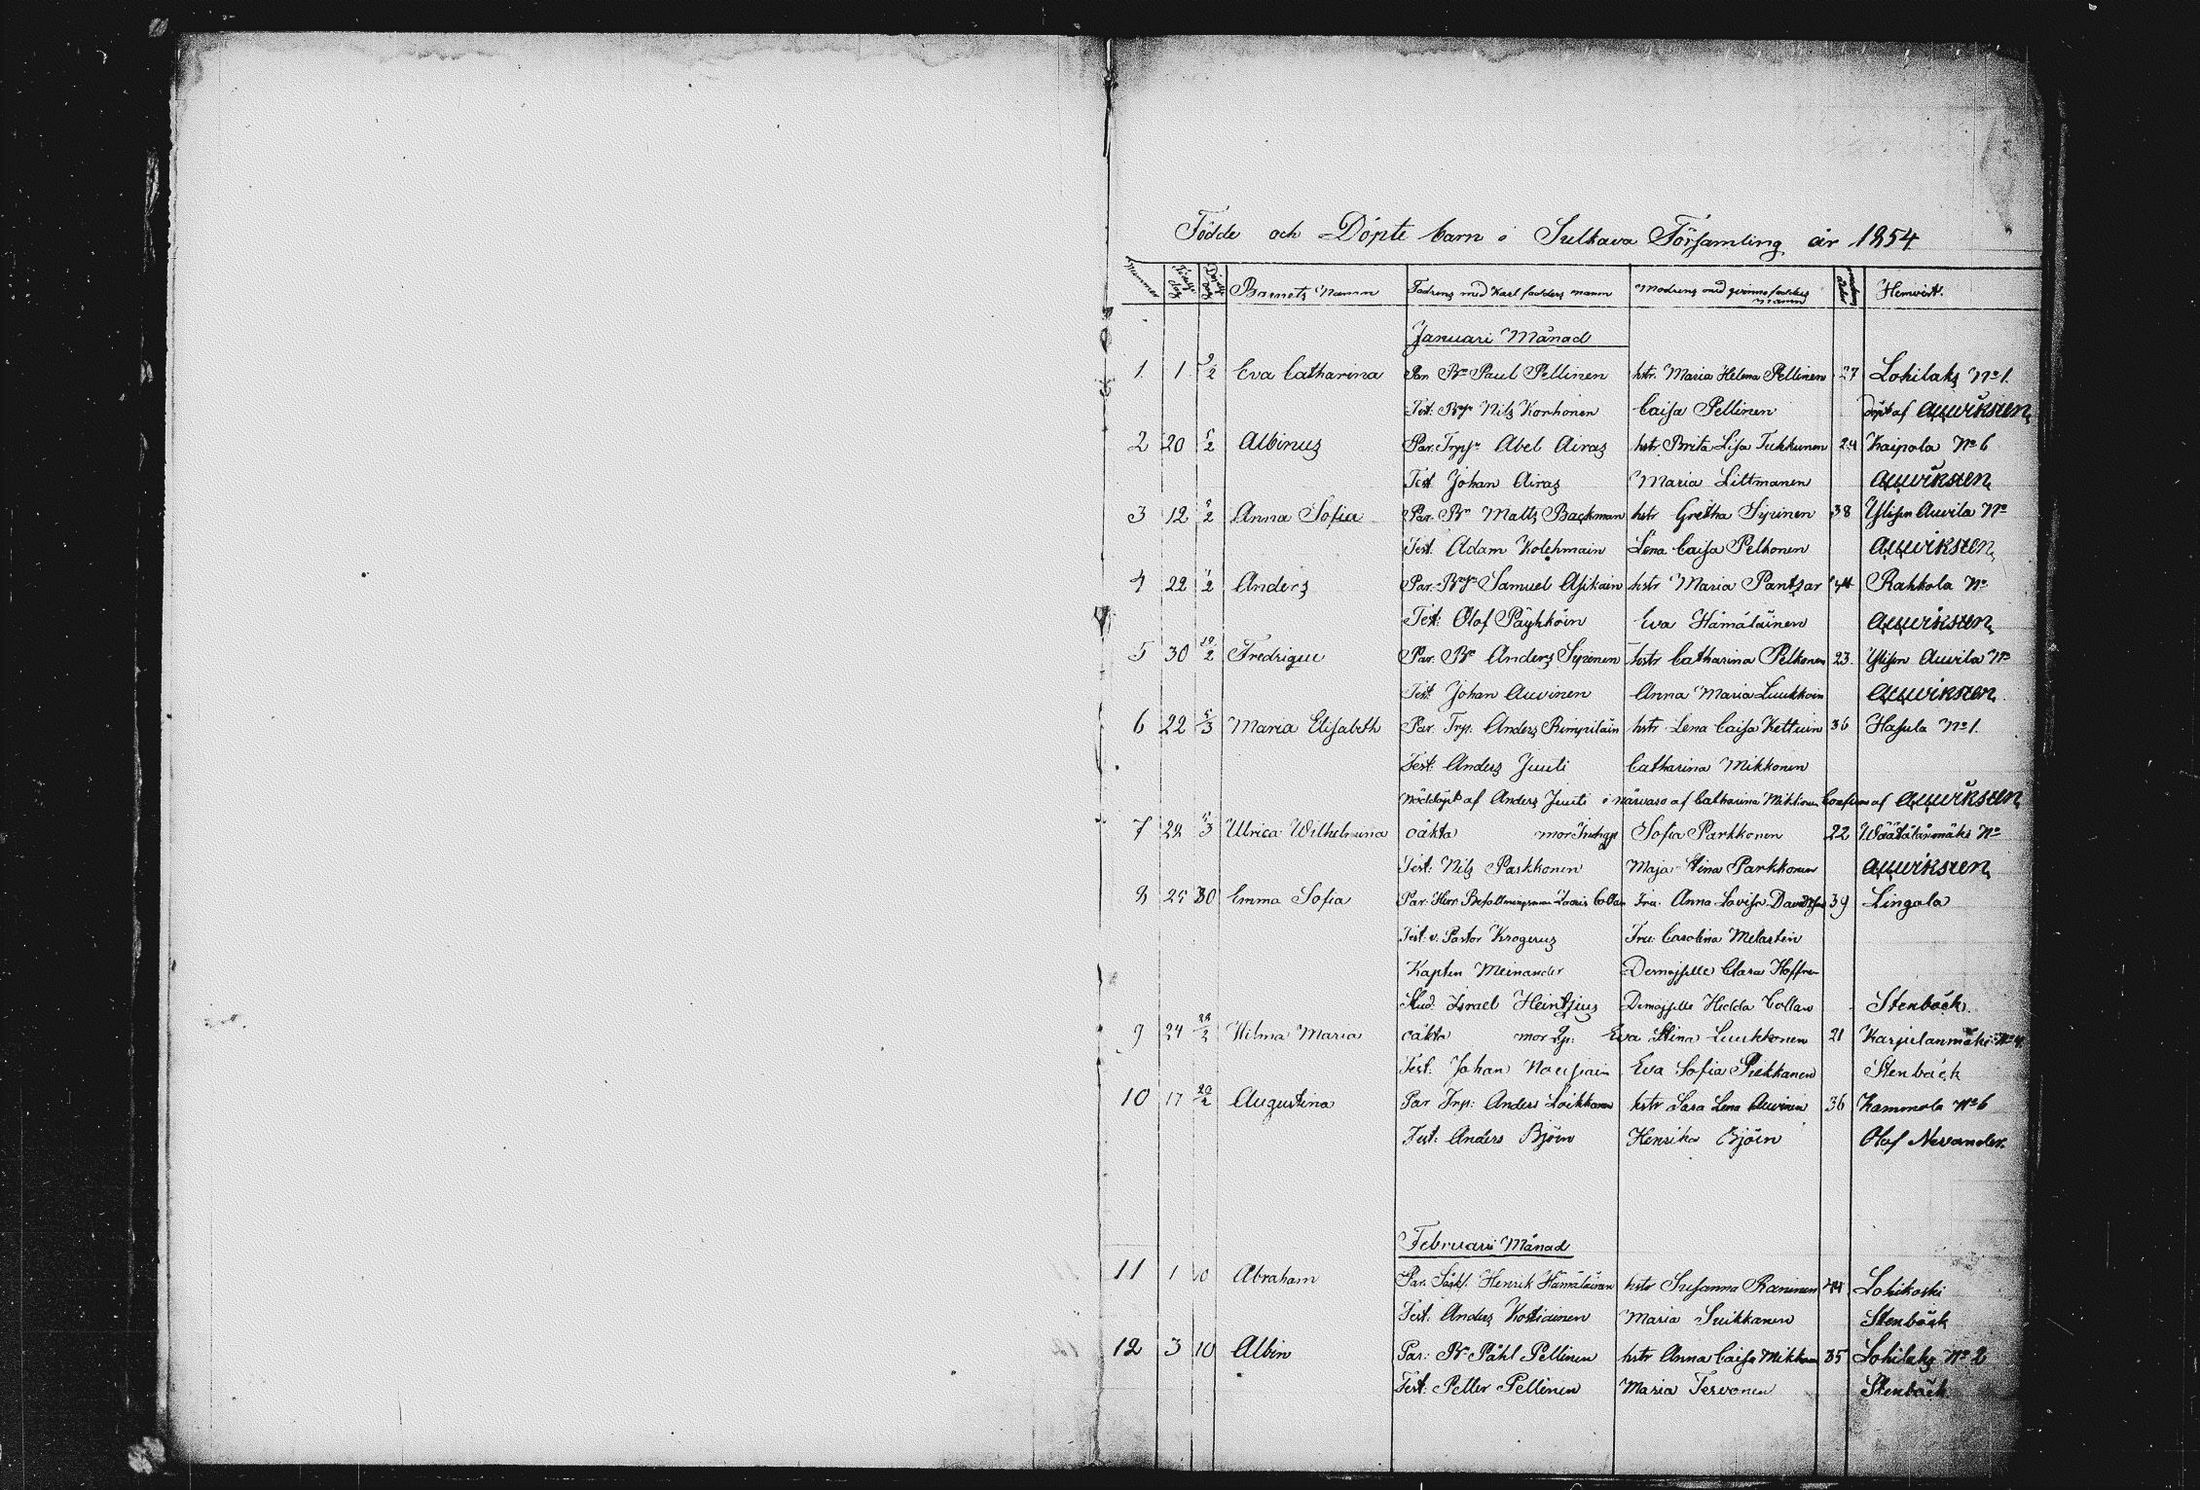 Födde och Döpte barn i Sulkava Församling år 1854
Nummer Födelse dag Döpelse dag Barnets Namn Fadrens med Karl fadders namn Modrens med qvinns fadders namn Hemvist.
Januari Månad
1 1 Eva Catharina Par. Bn Paul Pellinen hstr. Maria Helena Pellinen 27 Lohilaks No 1.
Test. Nils Korhonen Caisa Pellinen döpt af Auvikstén
2 20 5/2 Albinus Par. Abel Airas hstr. Brita Lisa Tukkunen 24 Kaipola No 6
Test Johan Airas Maria Littmanen Auvikstén
3 12 Anna Sofia Par. Bn Matts Backman hstr Gretha Syrinen 38 Auvila No
Test. Adam Kolehmain Lena Caisa Pelkonen Auvikstén
4 22 Anders Par. Samuel Asikain hstr Maria Pantsar 44 Rahkola No
Test: Olof Päyhköin Eva Hämäläinen Auvikstén
5 30 12/2 Fredrique Par. Bn Anders Syrenen hstr Catharina Pelkonen 23. Auvila No
Test Johan Auvinen Anna Maria Luukkoin Auvikstén
6 22 5/3 Maria Elisabeth Par. Trp. Anders Rimpiläin hstr Lena Caisa Kettuin 36 Hasula No 1.
Test: Anders Juuti Catharina Mikkonen
Nöddöpt af Anders Juuti i närvaro af Catharina Mikkonen af Auvikstén
7 22 Ulrica Wilhelmina oäkta mor Sofia Parkkonen 22 Wäätälänmäki No
Test: Nils Parkkonen Maja Stina Parkkonen Auvikstén
8 25 30 Emma Sofia Par. Herr Collan Fru Anna Lovisa 39 Lingola
Test: v. Pastor Krogerus Fru Carolina Melartin
Kapten Meinander Demoiselle Clara
Stud. Israel Heintzius Demoiselle Hedda Collan Stenbäck.
9 24 Wilma Maria oäkta mor Eva Stina Luukkonen 21 Karjulanmäki No 4
Test. Johan Eva Sofia Stenbäck
10 17 Augustina Par Trp: Anders Loikkanen hstr Sara Lena Auvinen 36 Kammola No 6
Test: Anders Björn Henrika Björn Olof Nevander.
Februari Månad
11 1 10 Abraham Par. Henrik Hämäläinen hstr Susanna Raninen 44 Lohikoski
Test. Anders Kostiainen Maria Suikkanen Stenbäck
12 3 10 Albin Par: Bn Påhl Pellinen hstr Anna Caisa 35 Lohilaks No 2
Test: Petter Pellinen Maria Tervonen Stenbäck